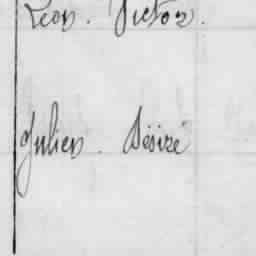 Léon. Victor.
Julien. Désiré